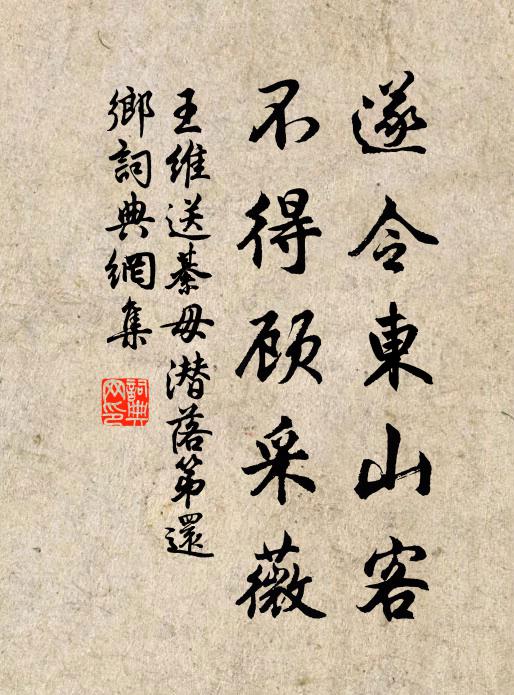 遂令東山客
不得顾采薇
王維送綦毋潜落第還
鄉詞典網集
詞典
网印